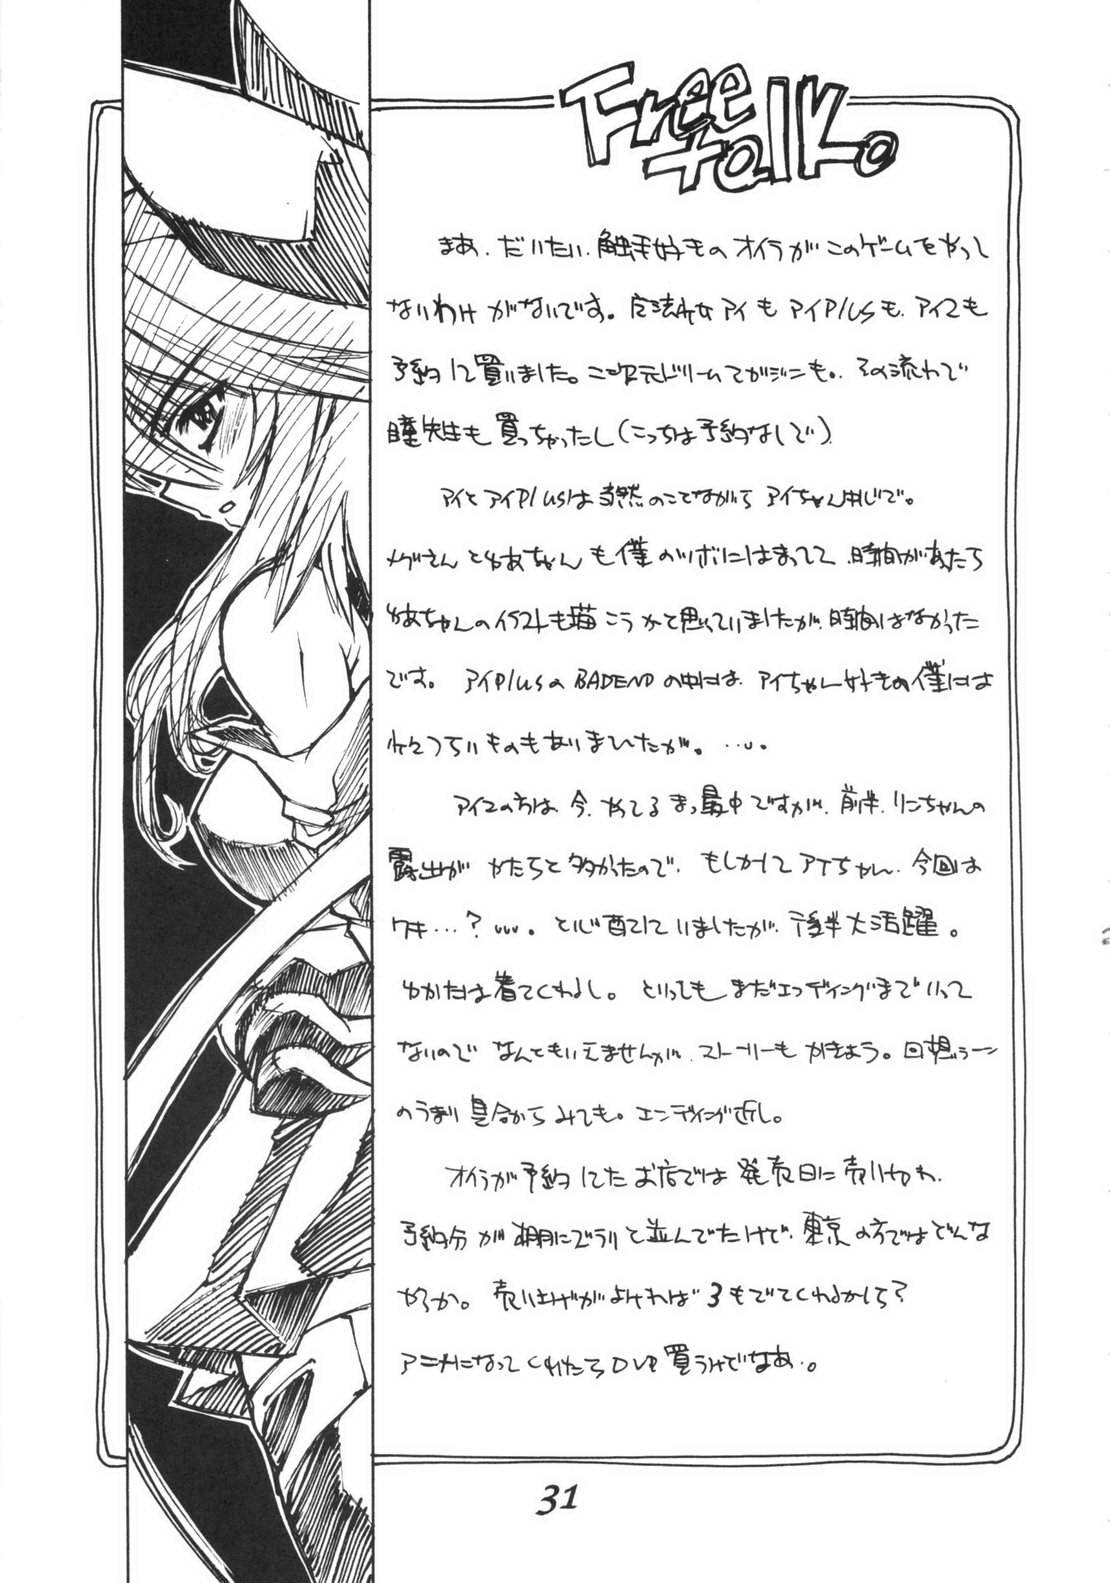 Free
talk。
まあ、だいたい、触手好きのオイラがこのゲームをやっし
ないわけがないです。魔法少女アイもアイPlusも、アイ2も
予約して買いました。二次元ドリームマガジンも。その流れで
瞳先生も買っちゃったし(こっちは予約なしで)。
アイとアイPlusは当然のことながらアイちゃん中心で。
メグさんとゆあちゃんも僕のツボにはまってて、時間があったら
ゆあちゃんのイラストも描こうかと思っていましたが、時間はなかった
です。アイPlusのBADENDの中には、アイちゃん好きの僕には
つらいものもありましたが。…。
アイ2の方は、今、やってるまっ最中ですが、前半、リンちゃんの
露出がかなりと多かったので、もしかしてアイちゃん、今回は
ワキ…?…。と心配していましたが、後半大活躍。
ゆかたは着てくれるし。といってもまだエンディングまでいって
ないのでなんともいえませんが、ストーリーもがきょう。回想シーン
のうまり具合からみても。エンディング近し。
オイラが予約してたお店では発売日に売り切れ、
予約分が棚にズラリと並んでたけど、東京の方ではどんな
かろか。売り上げがよければ3もでてくれるかしら?
アニメになってくれたらDVD買うけどなあ…。
31